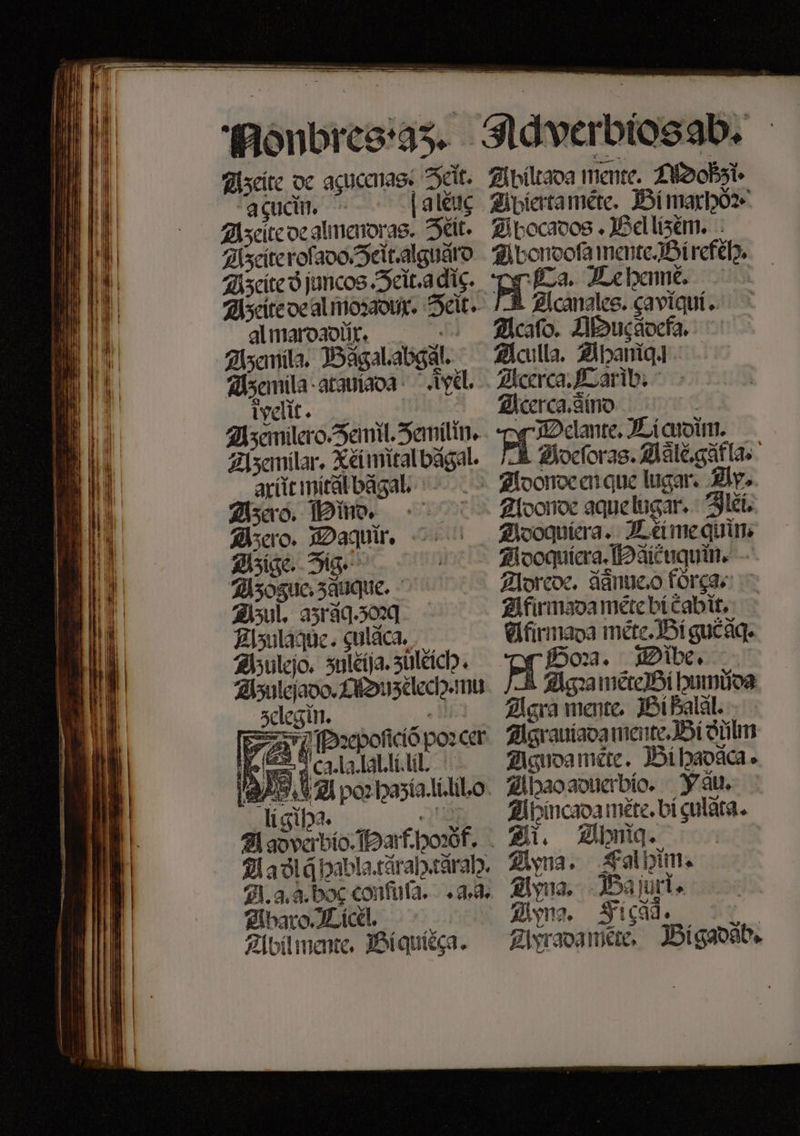 Nonbres:az.
Azeite de açucenas. Zéit.
açucin. [aléuç
Azeite de almendras. Zéit.
Azeite rosado. Zeit.alguárd
Azeite d juncos. Zeit.a diç.
Azeite de almoradux. Zeit.
al mardadúx.
Azemila. Bágal.abgál.
Azemila atauiada .ivél.
ivelit.
Azemilero. Zemil. Zemilin.
Azemilar. Xéi mital bágal.
axiit mitál bágal.
Azero. Dino.
Azero. Daquir.
Azige. Zig.
Azogue. záuque.
Azul. azráq.zorq
Azulaque. çuláca.
Azulejo. zuléija. zuléich.
Azulejado. Muzélech.mu
zelegin.
Preposició por cer
ca.la.lal.li.lil.
A por hazia.li.lil.o
ligiha.
A adverbio. Parf.horóf.
A adl q habla.tárah.tárah.
A.a.a.boç confusa. .a.a.
Abaro. Licél.
Abilmente. Biquiéça.
Adverbios ab.
Abiltada mente. Mdohsi.
Abiertaméte. Bi marhóz
Abocados. Bel lisém.
Abondosa mente. Bi reféh.
Ca. Le henné.
Acanales. çaviquí.
Acaso. Muçádefa.
Aculla. Ahaniq.
Acerca. Carib.
Acerca. áind
Delante. Li cudim.
Adeforas. Alálé.gáfla.
Adonde en que lugar. Ay.
Adonde aquel lugar. Iléi.
Adoquiera. Léime quin.
Adoquiera. Háiçuquin.
Adrede. áánue.o fórça.
Afirmada méte bi çabit.
Afirmada méte. Bi guçáq.
Dora. Dibe.
Agra méte Bi humúda
Agra mente. Bi halál.
Agrauiada mente. Bi dúlm
Aguda méte. Bi hadáca.
Ahao aduerbio. Yáu.
Ahincada méte. bi çuláta.
Ai. Ahniq.
Ayna. Fal him.
Ayna. Bajuri.
Ayna. Fiçáá.
Ayrada méte. Bi gadáb.